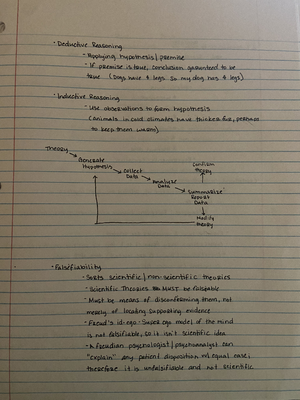 - Deductive Reasoning
- Applying hypothesis/premise
- If premise is true, conclusion garunteed to be
true (Dogs have 4 legs so my dog has 4 legs)
- Inductive Reasoning
- Use observations to form hypothesis
(animals in cold climates have thicker fur, perhaps
to keep them warm)
Theory
Generate
Hypothesis
Collect
Data
Analyze
Data
Summarize
Report
Data
Confirm
theory
Modify
theory
- Falsefiability
- Sorts scientific/non-scientific theories
- Scientific Theories MUST be falsifiable
- Must be means of disconfirming them, not
merely of locating supporting evidence
- Freud's id-ego-superego model of the mind
is not falsifiable, so it isn't scientific idea
- A freudian psychologist/psychoanalyst can
"explain" any patient disposition w/ equal ease;
therefore it is unfalsifiable and not scientific